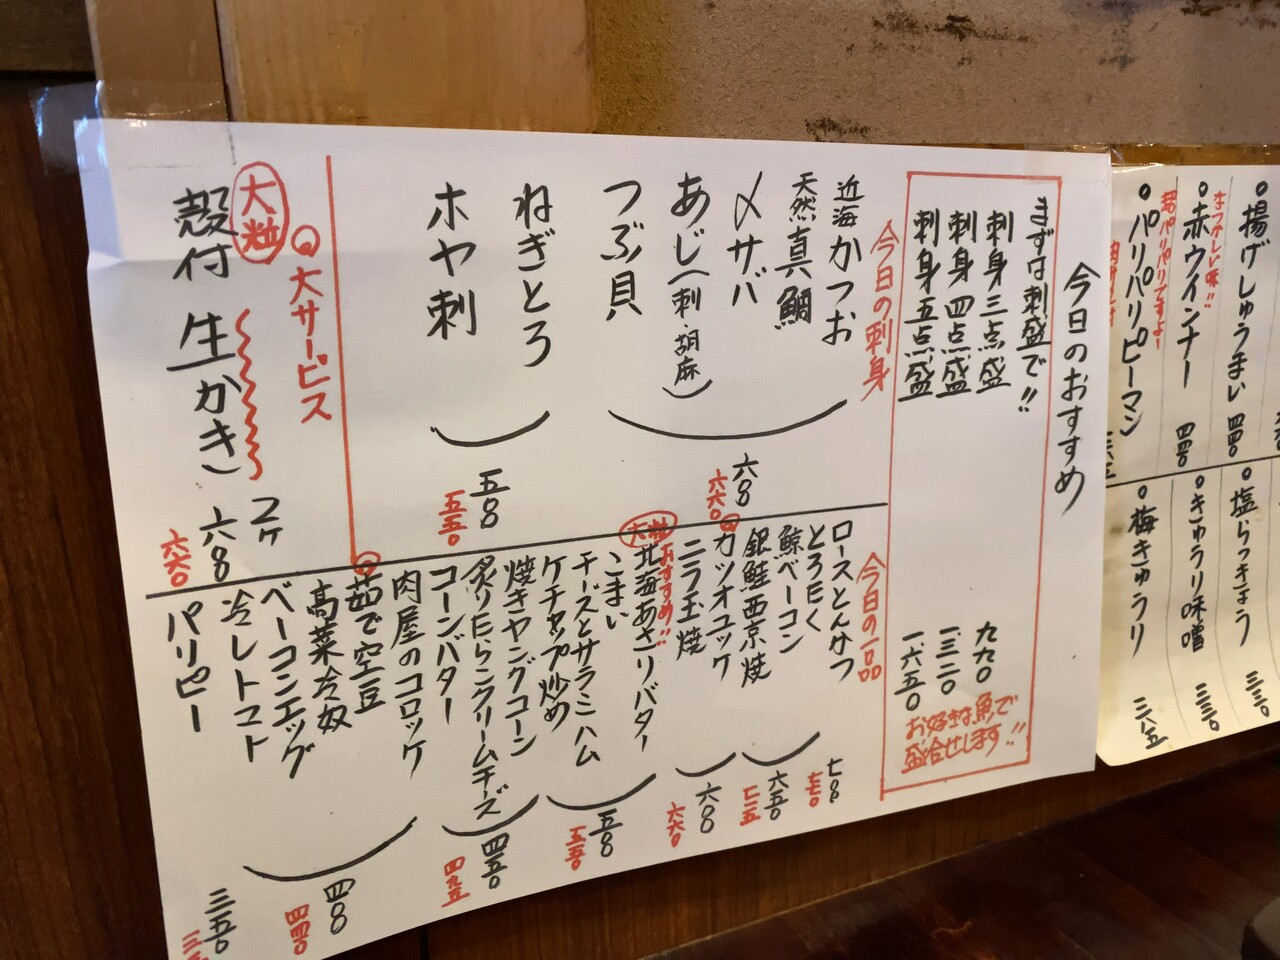 揚げしゅうまい 四四〇
なつかしい味!!
赤ウインナー 四四〇
超パリパリですよー
パリパリピーマン 三八五
塩らっきょう 三三〇
きゅうり味噌 三三〇
梅きゅうり 三八五
今日のおすすめ
まずは刺盛で!!
刺身三点盛 九九〇
刺身四点盛 一三二〇
刺身五点盛 一六五〇
お好きな魚で
盛合せします!!
今日の刺身
近海かつお
天然真鯛
〆サバ
あじ(刺・胡麻)
つぶ貝
六〇〇
六六〇
ねぎとろ
ホヤ刺
五〇〇
五五〇
大サービス
大粒
殻付 生かき 2ケ
六〇〇
六六〇
今日の一品
ロースとんかつ
七〇〇
七七〇
とろたく
鯨ベーコン
銀鮭西京焼
六五〇
七一五
カツオユッケ
ニラ玉焼
六〇〇
六六〇
おすすめ!!
大粒
北海あさりバター
こまい
チーズとサラミハム
ケチャップ炒め
五〇〇
五五〇
焼きヤングコーン
炙りたらこクリームチーズ
コーンバター
四五〇
四九五
肉屋のコロッケ
茹で空豆
高菜冷奴
ベーコンエッグ
冷しトマト
四〇〇
四四〇
パリピー
三五〇